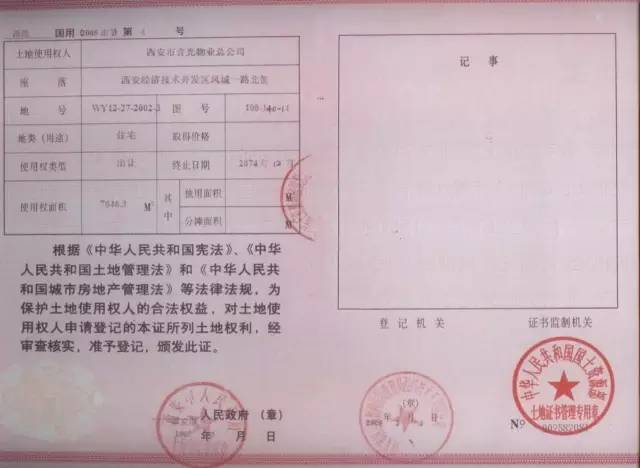 国用 2008 出 第 4 号
土地使用权人 西安市含光物业总公司
座落 西安经济技术开发区凤城一路北侧
地号 WY12-27-2002-3 图号
地类(用途) 住宅 取得价格
使用权类型 出让 终止日期 2074年12月
使用权面积 7646.3 M² 其中 独用面积 M²
分摊面积 M²
根据《中华人民共和国宪法》、《中华
人民共和国土地管理法》和《中华人民共
和国城市房地产管理法》等法律法规,为
保护土地使用权人的合法权益,对土地使
用权人申请登记的本证所列土地权利,经
审查核实,准予登记,颁发此证。
人民政府(章)
年 月 日
记事
登记机关
证书监制机关
(章)
年 月 日
中华人民共和国国土资源部
土地证书管理专用章
№ 002582083